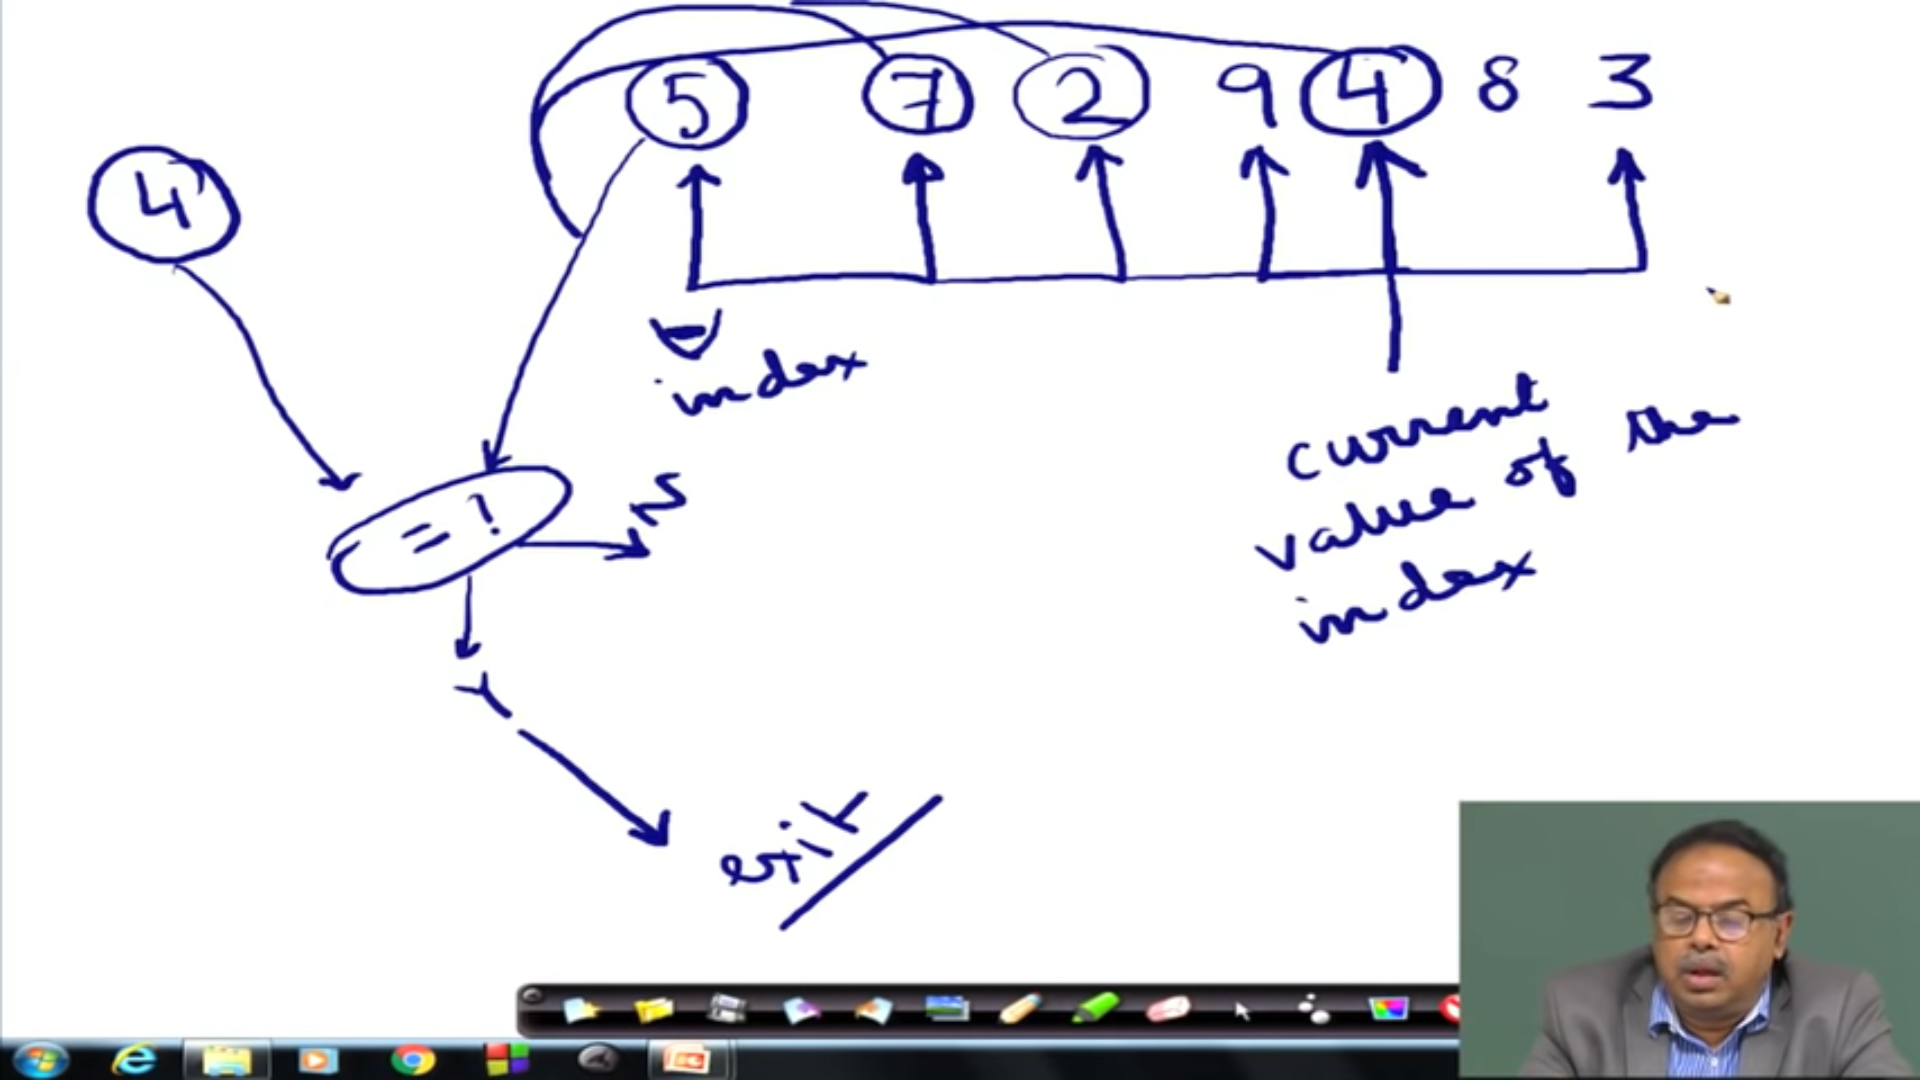 5 7 2 9 4 8 3
4
index
current
value of the
index
= ?
N
Y
exit